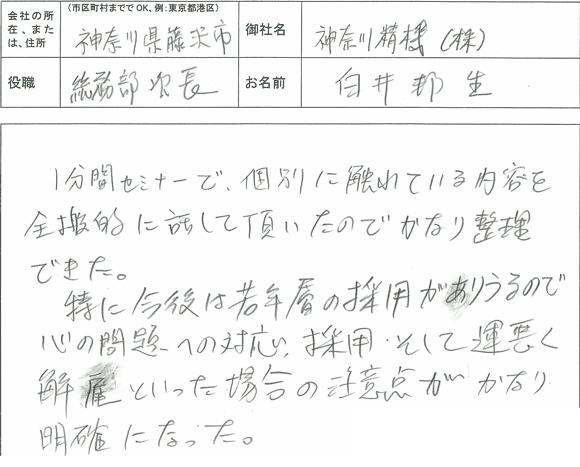 会社の所在、または、住所
(市区町村まででOK、例:東京都港区)
神奈川県藤沢市
御社名
神奈川精機(株)
役職
総務部次長
お名前
白井邦生
1分間セミナーで、個別に触れている内容を
全搬的に話して頂いたのでかなり整理
できた。
特に今後は若年層の採用がありうるので
心の問題への対応、採用・そして運悪く
解雇といった場合の注意点がかなり
明確になった。